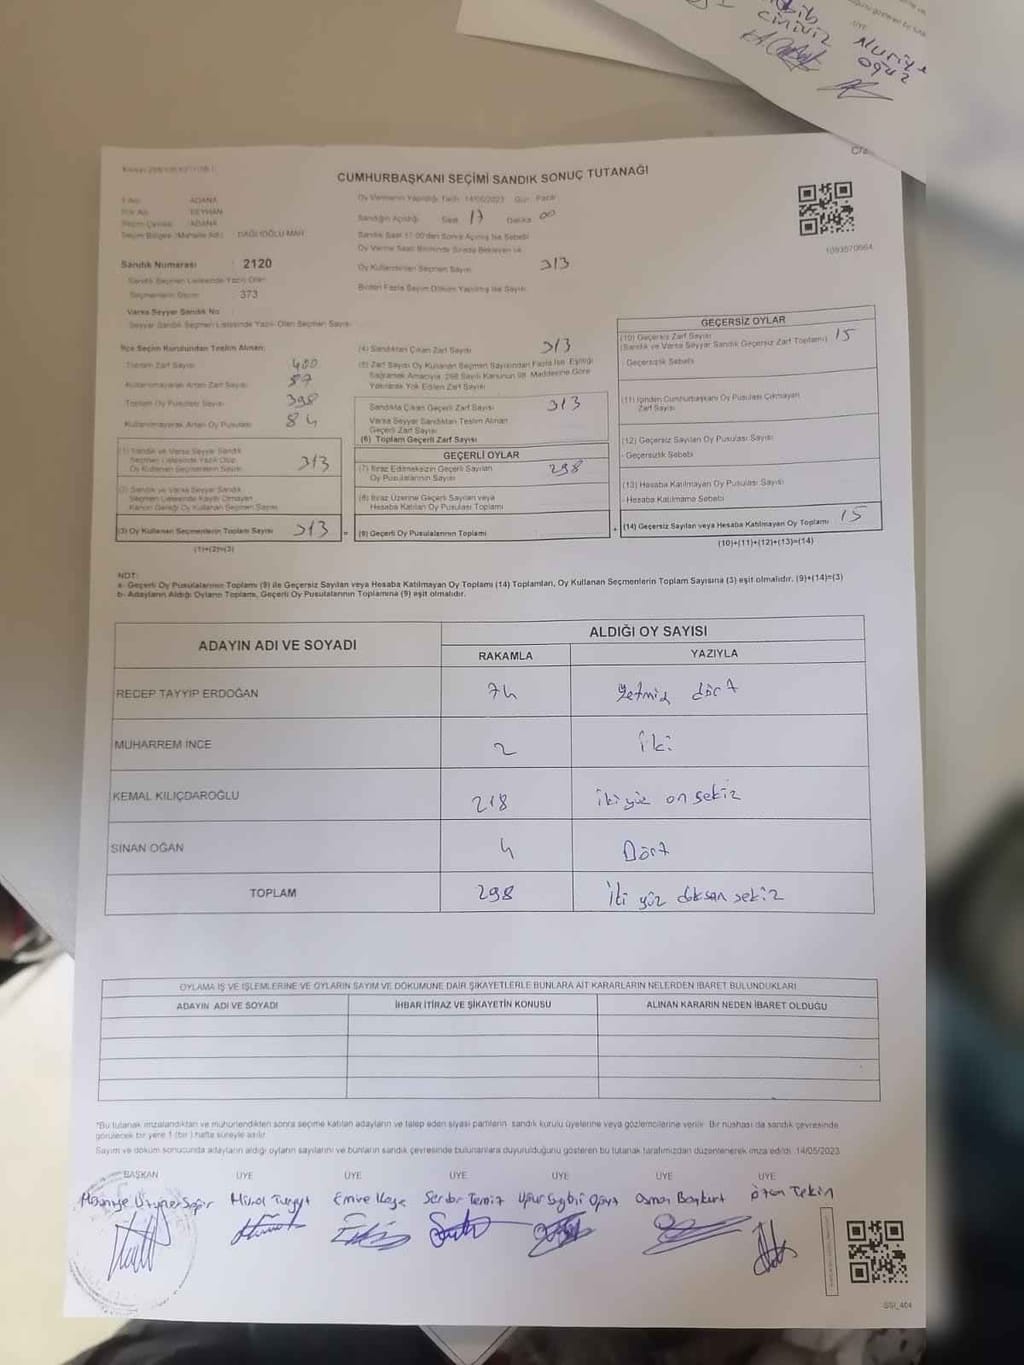 Nuriye
CUMHURBAŞKANI SEÇİMİ SANDIK SONUÇ TUTANAĞI
Oy Vermenin Yapıldığı Tarih: 14/05/2023 Gün: Pazar
İl Adı: ADANA
İlçe Adı: SEYHAN
Seçim Çevresi: ADANA
Seçim Bölgesi (Mahalle Adı): DAĞLIOĞLU MAH.
Sandığın Açıldığı Saat 17 Dakika 00
Sandık Saat 17:00'den Sonra Açılmış İse Sebebi
Oy Verme Saati Bitiminde Sırada Bekleyen
1093570664
Sandık Numarası 2120
Oy Kullandırılan Seçmen Sayısı 313
Sandık Seçmen Listesinde Yazılı Olan
Seçmenlerin Sayısı 373
Birden Fazla Sayım Döküm Yapılmış İse Sayısı
Varsa Seyyar Sandık No
Seyyar Sandık Seçmen Listesinde Yazılı Olan Seçmen Sayısı
İlçe Seçim Kurulundan Teslim Alınan:
Toplam Zarf Sayısı 400
Kullanılmayarak Artan Zarf Sayısı 87
Toplam Oy Pusulası Sayısı 398
Kullanılmayarak Artan Oy Pusulası 84
(1) Sandık ve Varsa Seyyar Sandık
Seçmen Listesinde Yazılı Olup
Oy Kullanan Seçmenlerin Sayısı 313
(2) Sandık ve Varsa Seyyar Sandık
Seçmen Listesinde Kayıtlı Olmayan
Kanun Gereği Oy Kullanan Seçmen Sayısı
(3) Oy Kullanan Seçmenlerin Toplam Sayısı 313
(1)+(2)=(3)
(4) Sandıktan Çıkan Zarf Sayısı 313
(5) Zarf Sayısı Oy Kullanan Seçmen Sayısından Fazla İse, Eşitliği
Sağlamak Amacıyla, 298 Sayılı Kanunun 98. Maddesine Göre
Yakılarak Yok Edilen Zarf Sayısı
Sandıkta Çıkan Geçerli Zarf Sayısı 313
Varsa Seyyar Sandıktan Teslim Alınan
Geçerli Zarf Sayısı
(6) Toplam Geçerli Zarf Sayısı
GEÇERLİ OYLAR
(7) İtiraz Edilmeksizin Geçerli Sayılan
Oy Pusulalarının Sayısı 298
(8) İtiraz Üzerine Geçerli Sayılan veya
Hesaba Katılan Oy Pusulası Toplamı
(9) Geçerli Oy Pusulalarının Toplamı
GEÇERSİZ OYLAR
(10) Geçersiz Zarf Sayısı
(Sandık ve Varsa Seyyar Sandık Geçersiz Zarf Toplamı) 15
- Geçersizlik Sebebi
(11) İçinden Cumhurbaşkanı Oy Pusulası Çıkmayan
Zarf Sayısı
(12) Geçersiz Sayılan Oy Pusulası Sayısı
- Geçersizlik Sebebi
(13) Hesaba Katılmayan Oy Pusulası Sayısı
- Hesaba Katılmama Sebebi
(14) Geçersiz Sayılan veya Hesaba Katılmayan Oy Toplamı 15
(10)+(11)+(12)+(13)=(14)
NOT:
a- Geçerli Oy Pusulalarının Toplamı (9) ile Geçersiz Sayılan veya Hesaba Katılmayan Oy Toplamı (14) Toplamları, Oy Kullanan Seçmenlerin Toplam Sayısına (3) eşit olmalıdır. (9)+(14)=(3)
b- Adayların Aldığı Oyların Toplamı, Geçerli Oy Pusulalarının Toplamına (9) eşit olmalıdır.
ADAYIN ADI VE SOYADI
ALDIĞI OY SAYISI
RAKAMLA YAZIYLA
RECEP TAYYİP ERDOĞAN 74 Yetmiş dört
MUHARREM İNCE 2 İki
KEMAL KILIÇDAROĞLU 218 ikiyüz on sekiz
SİNAN OĞAN 4 Dört
TOPLAM 298 İki yüz doksan sekiz
OYLAMA İŞ VE İŞLEMLERİNE VE OYLARIN SAYIM VE DÖKÜMÜNE DAİR ŞİKAYETLERLE BUNLARA AİT KARARLARIN NELERDEN İBARET BULUNDUKLARI
ADAYIN ADI VE SOYADI İHBAR İTİRAZ VE ŞİKAYETİN KONUSU ALINAN KARARIN NEDEN İBARET OLDUĞU
*Bu tutanak imzalandıktan ve mühürlendikten sonra seçime katılan adayların ve talep eden siyasi partilerin sandık kurulu üyelerine veya gözlemcilerine verilir. Bir nüshası da sandık çevresinde
görülecek bir yere 1 (bir) hafta süreyle asılır.
Sayım ve döküm sonucunda adayların aldığı oyların sayılarını ve bunların sandık çevresinde bulunanlara duyurulduğunu gösteren bu tutanak tarafımızdan düzenlenerek imza edildi. 14/05/2023
BAŞKAN ÜYE ÜYE ÜYE ÜYE ÜYE ÜYE
Emine Serdar Temiz Osman Bozkurt Ozan Tekin
SSI_404